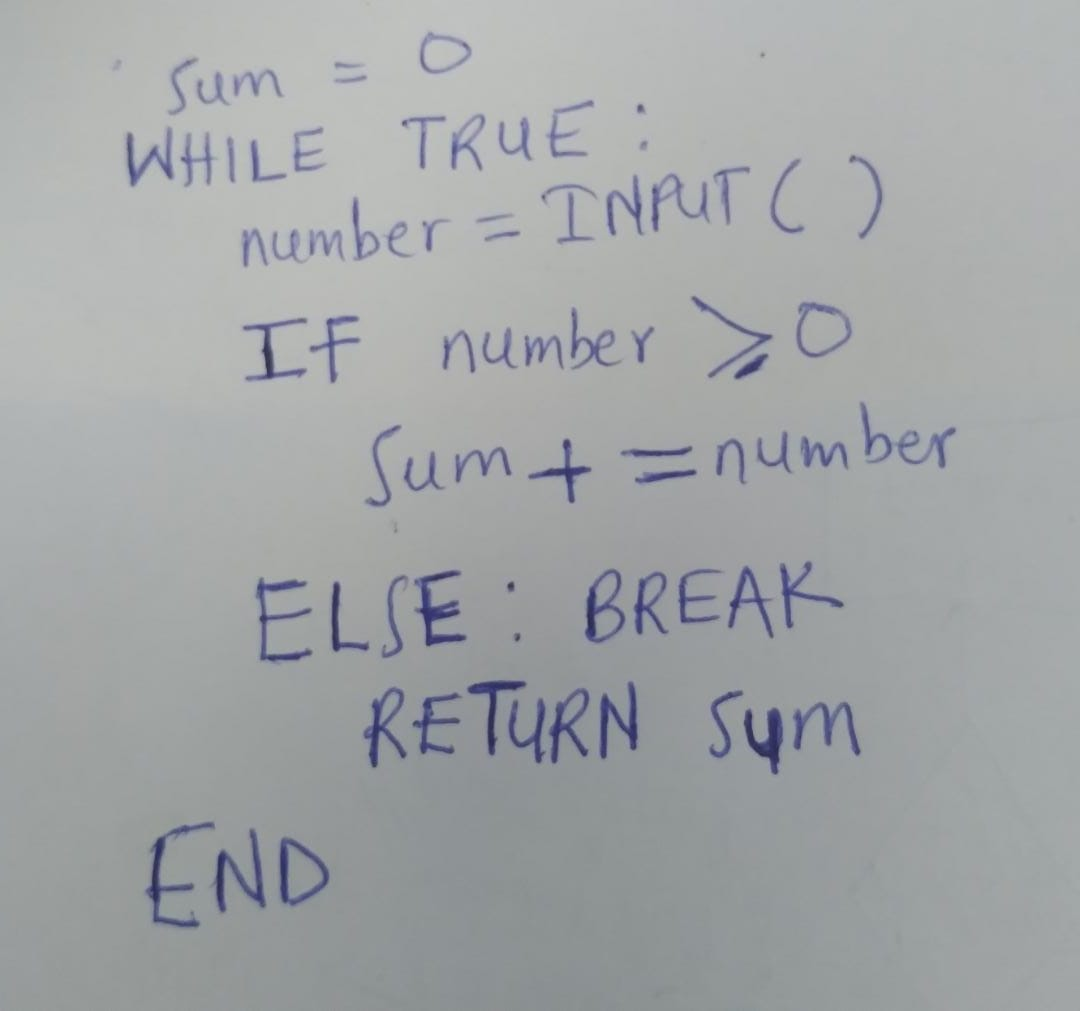 sum = 0
WHILE TRUE :
number = INPUT ( )
IF number ⩾ 0
sum + = number
ELSE : BREAK
RETURN sum
END